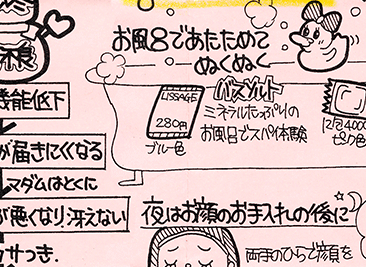 お風呂であたためて
ぬくぬく
機能低下
が届きにくくなる
マダムはとくに
が悪くなり!冴えない
カサつき.
LISSAGE
280円
ブルー色
バスソルト
ミネラルたっぷりの
お風呂でスパイ体験
ピンク色
夜はお顔のお手入れの後に
両手のひらで顔を